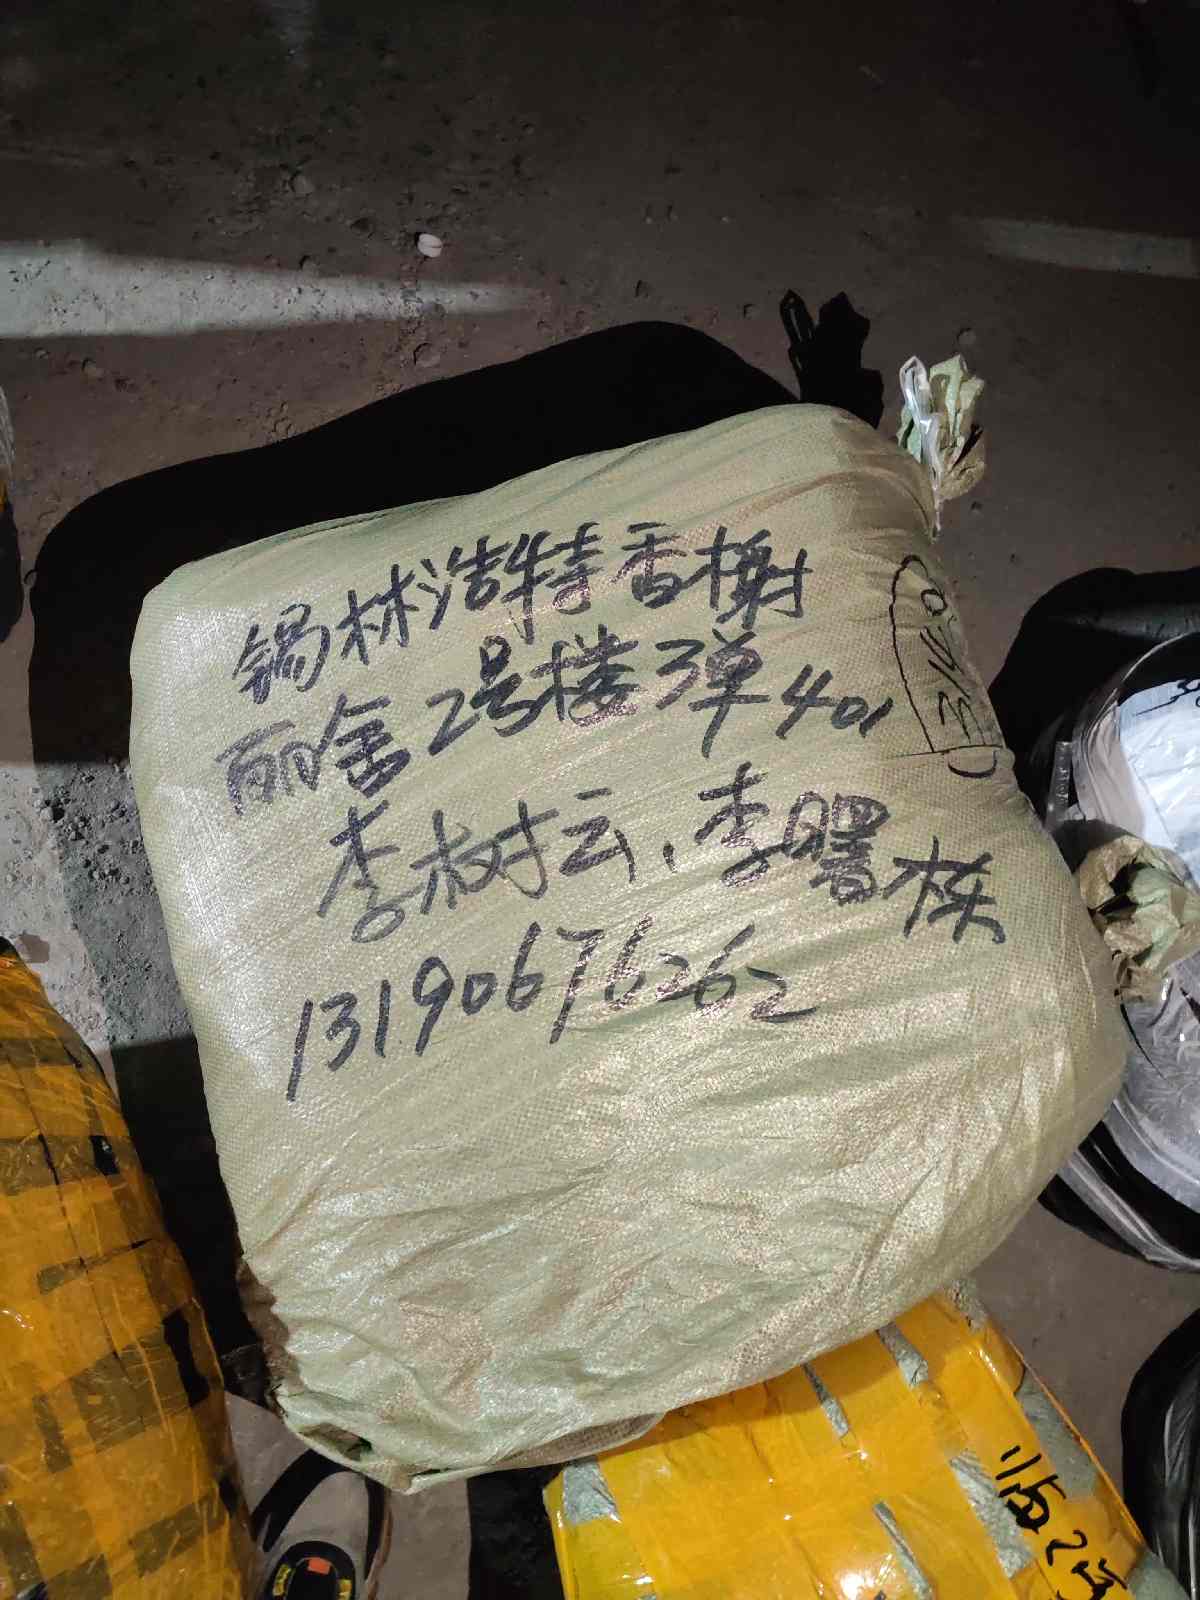 锡林浩特香榭
丽舍2号楼3单401
李树云、李曙栋
13190676262